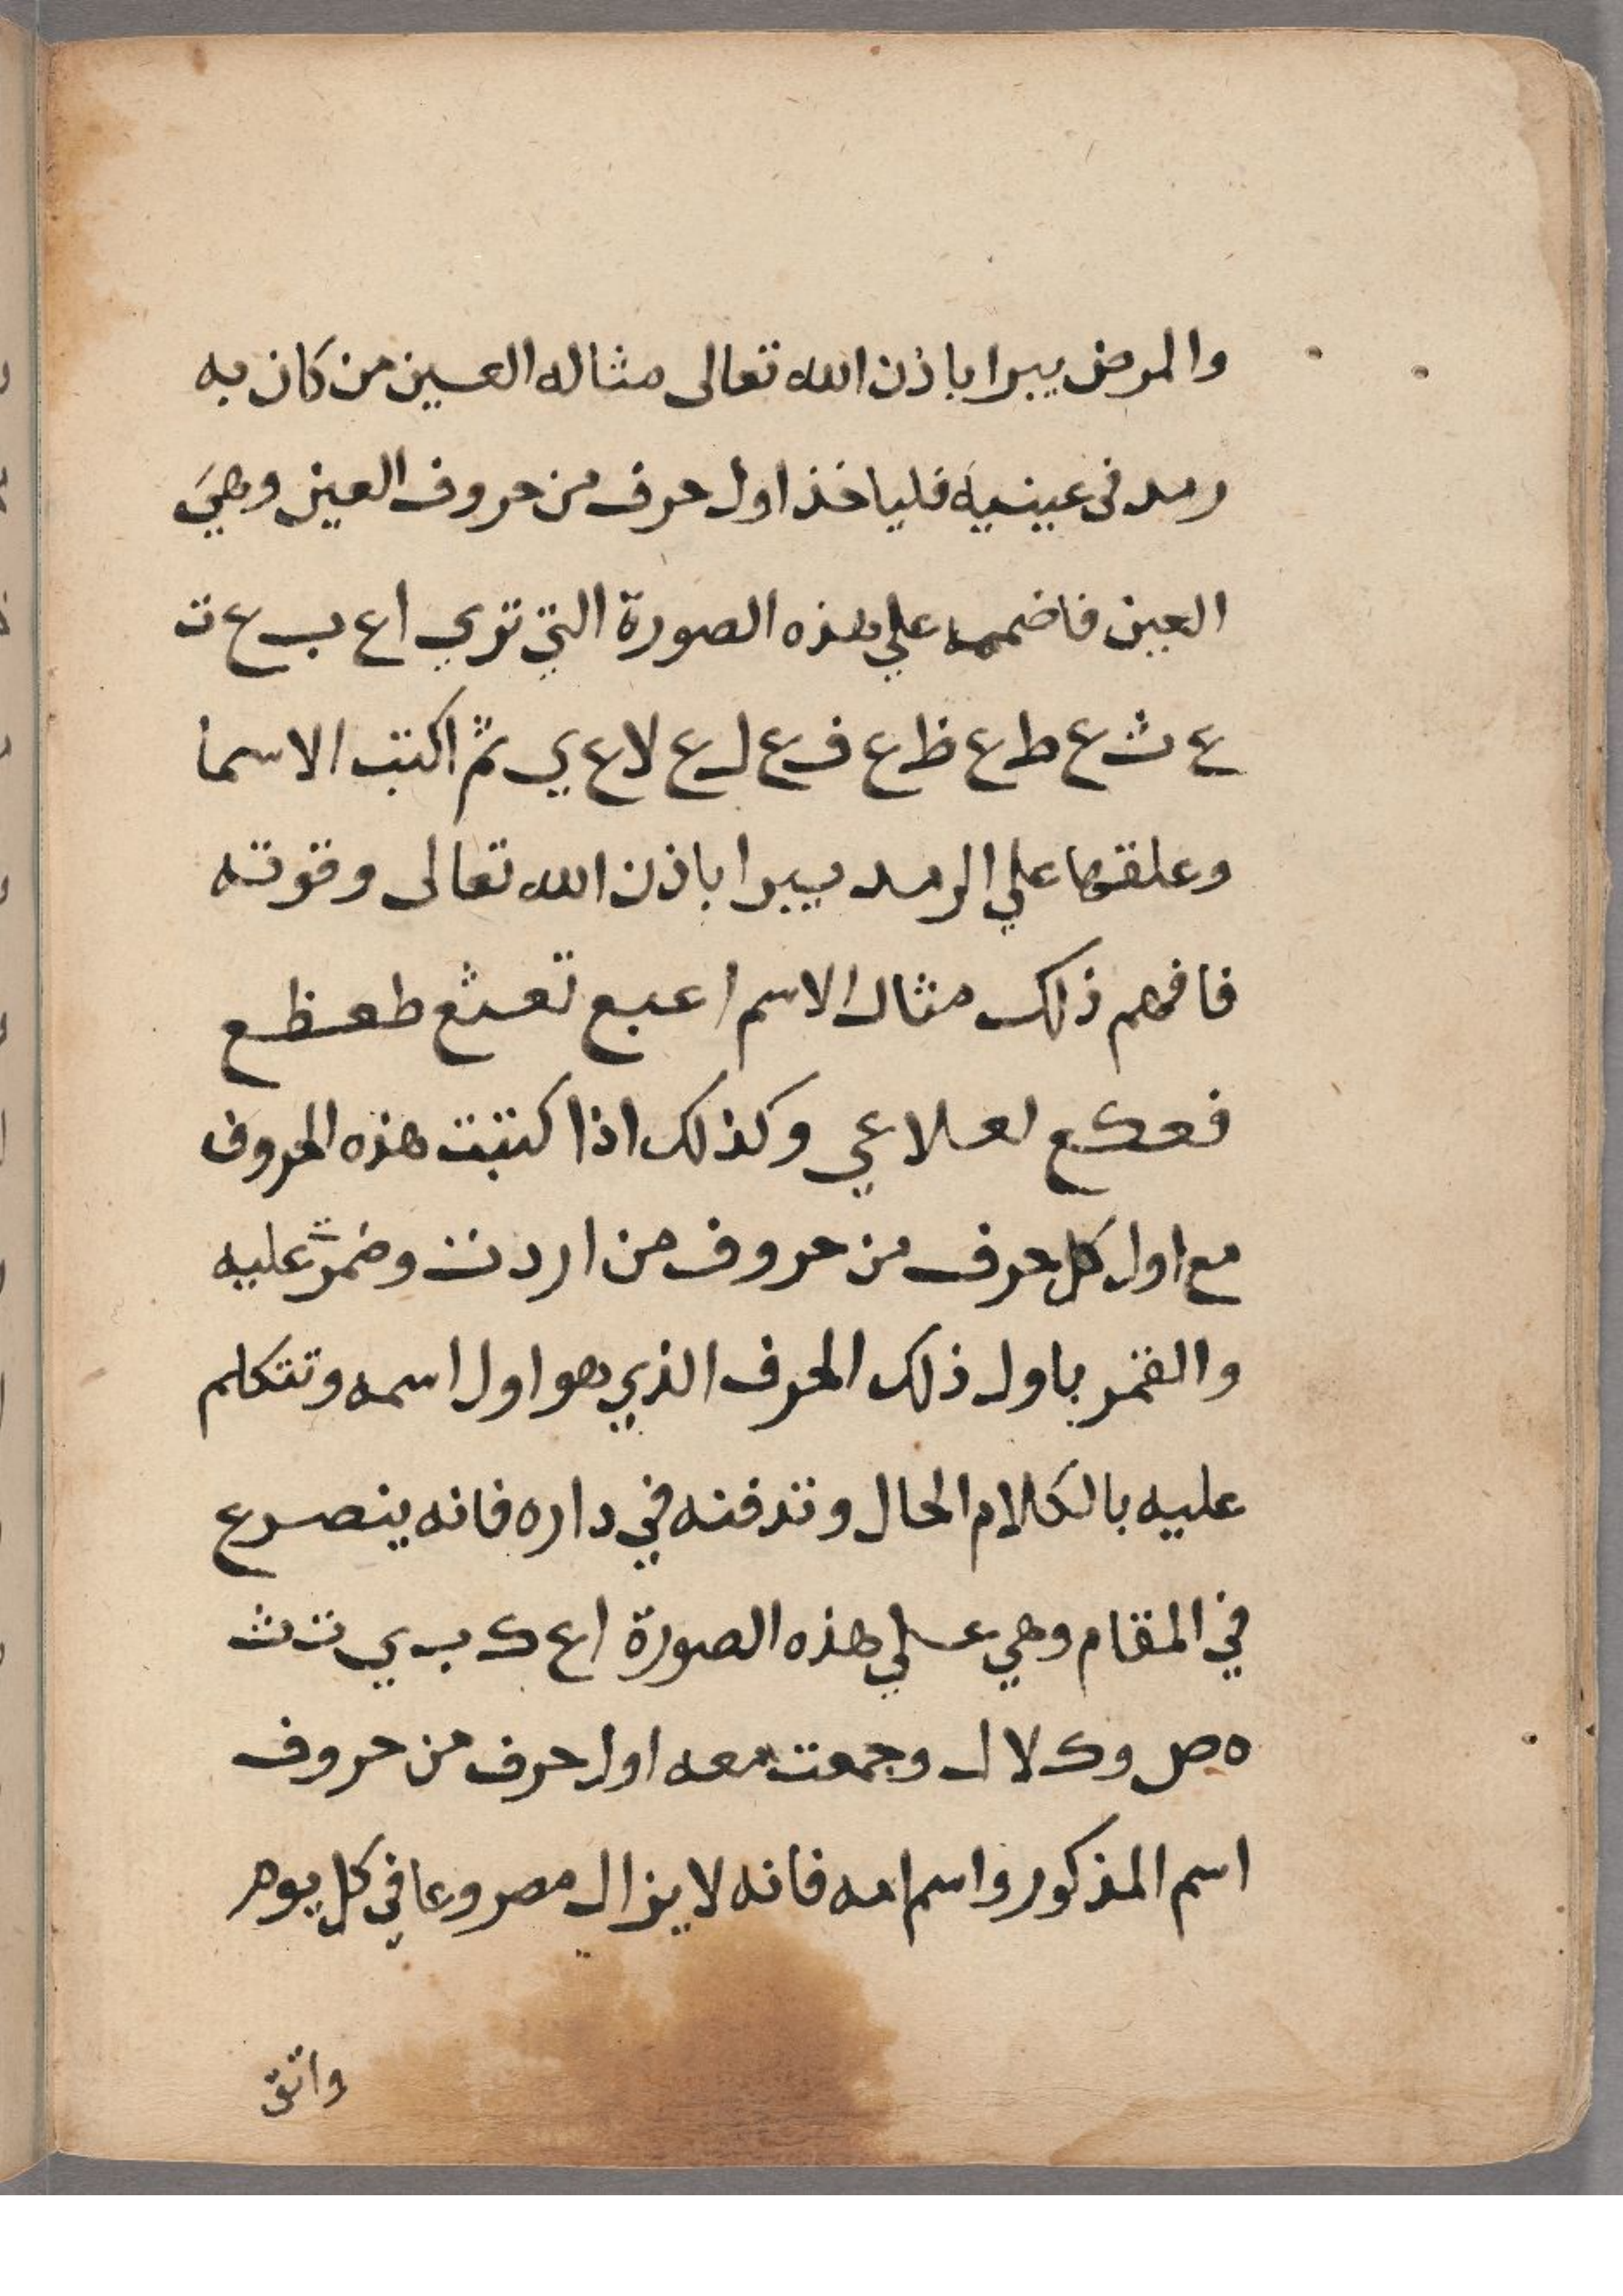 والمرض يبرا باذن الله تعالى مثاله العين من كان به
رمد فى عينيه فلياخذ اول حرف من حروف العين وهي
العين فاضممه علي هذه الصورة التي تري ا ع ب ع ت
ع ث ع ط ع ظ ع ف ع ل ع لا ع ي ثم اكتب الاسما
وعلقها علي الرمد يبرا باذن الله تعالى وقوته
فافهم ذلك مثال الاسم اعبع تعثع طعظع
فعكع لعلاعي وكذلك اذا كتبت هذه الحروف
مع اول كل حرف من حروف من اردت عليه
والقمر باول ذلك الحرف الذي هو اول اسمه وتتكلم
عليه بالكلام الحال وتدفنه في داره فانه ينصرع
في المقام وهي علي هذه الصورة ا ع ك ب ي ت ث
ه ص و ك لا ل وجمعت معه اول حرف من حروف
اسم المذكور واسم امه فانه لا يزال مصروعا في كل يوم
واتق